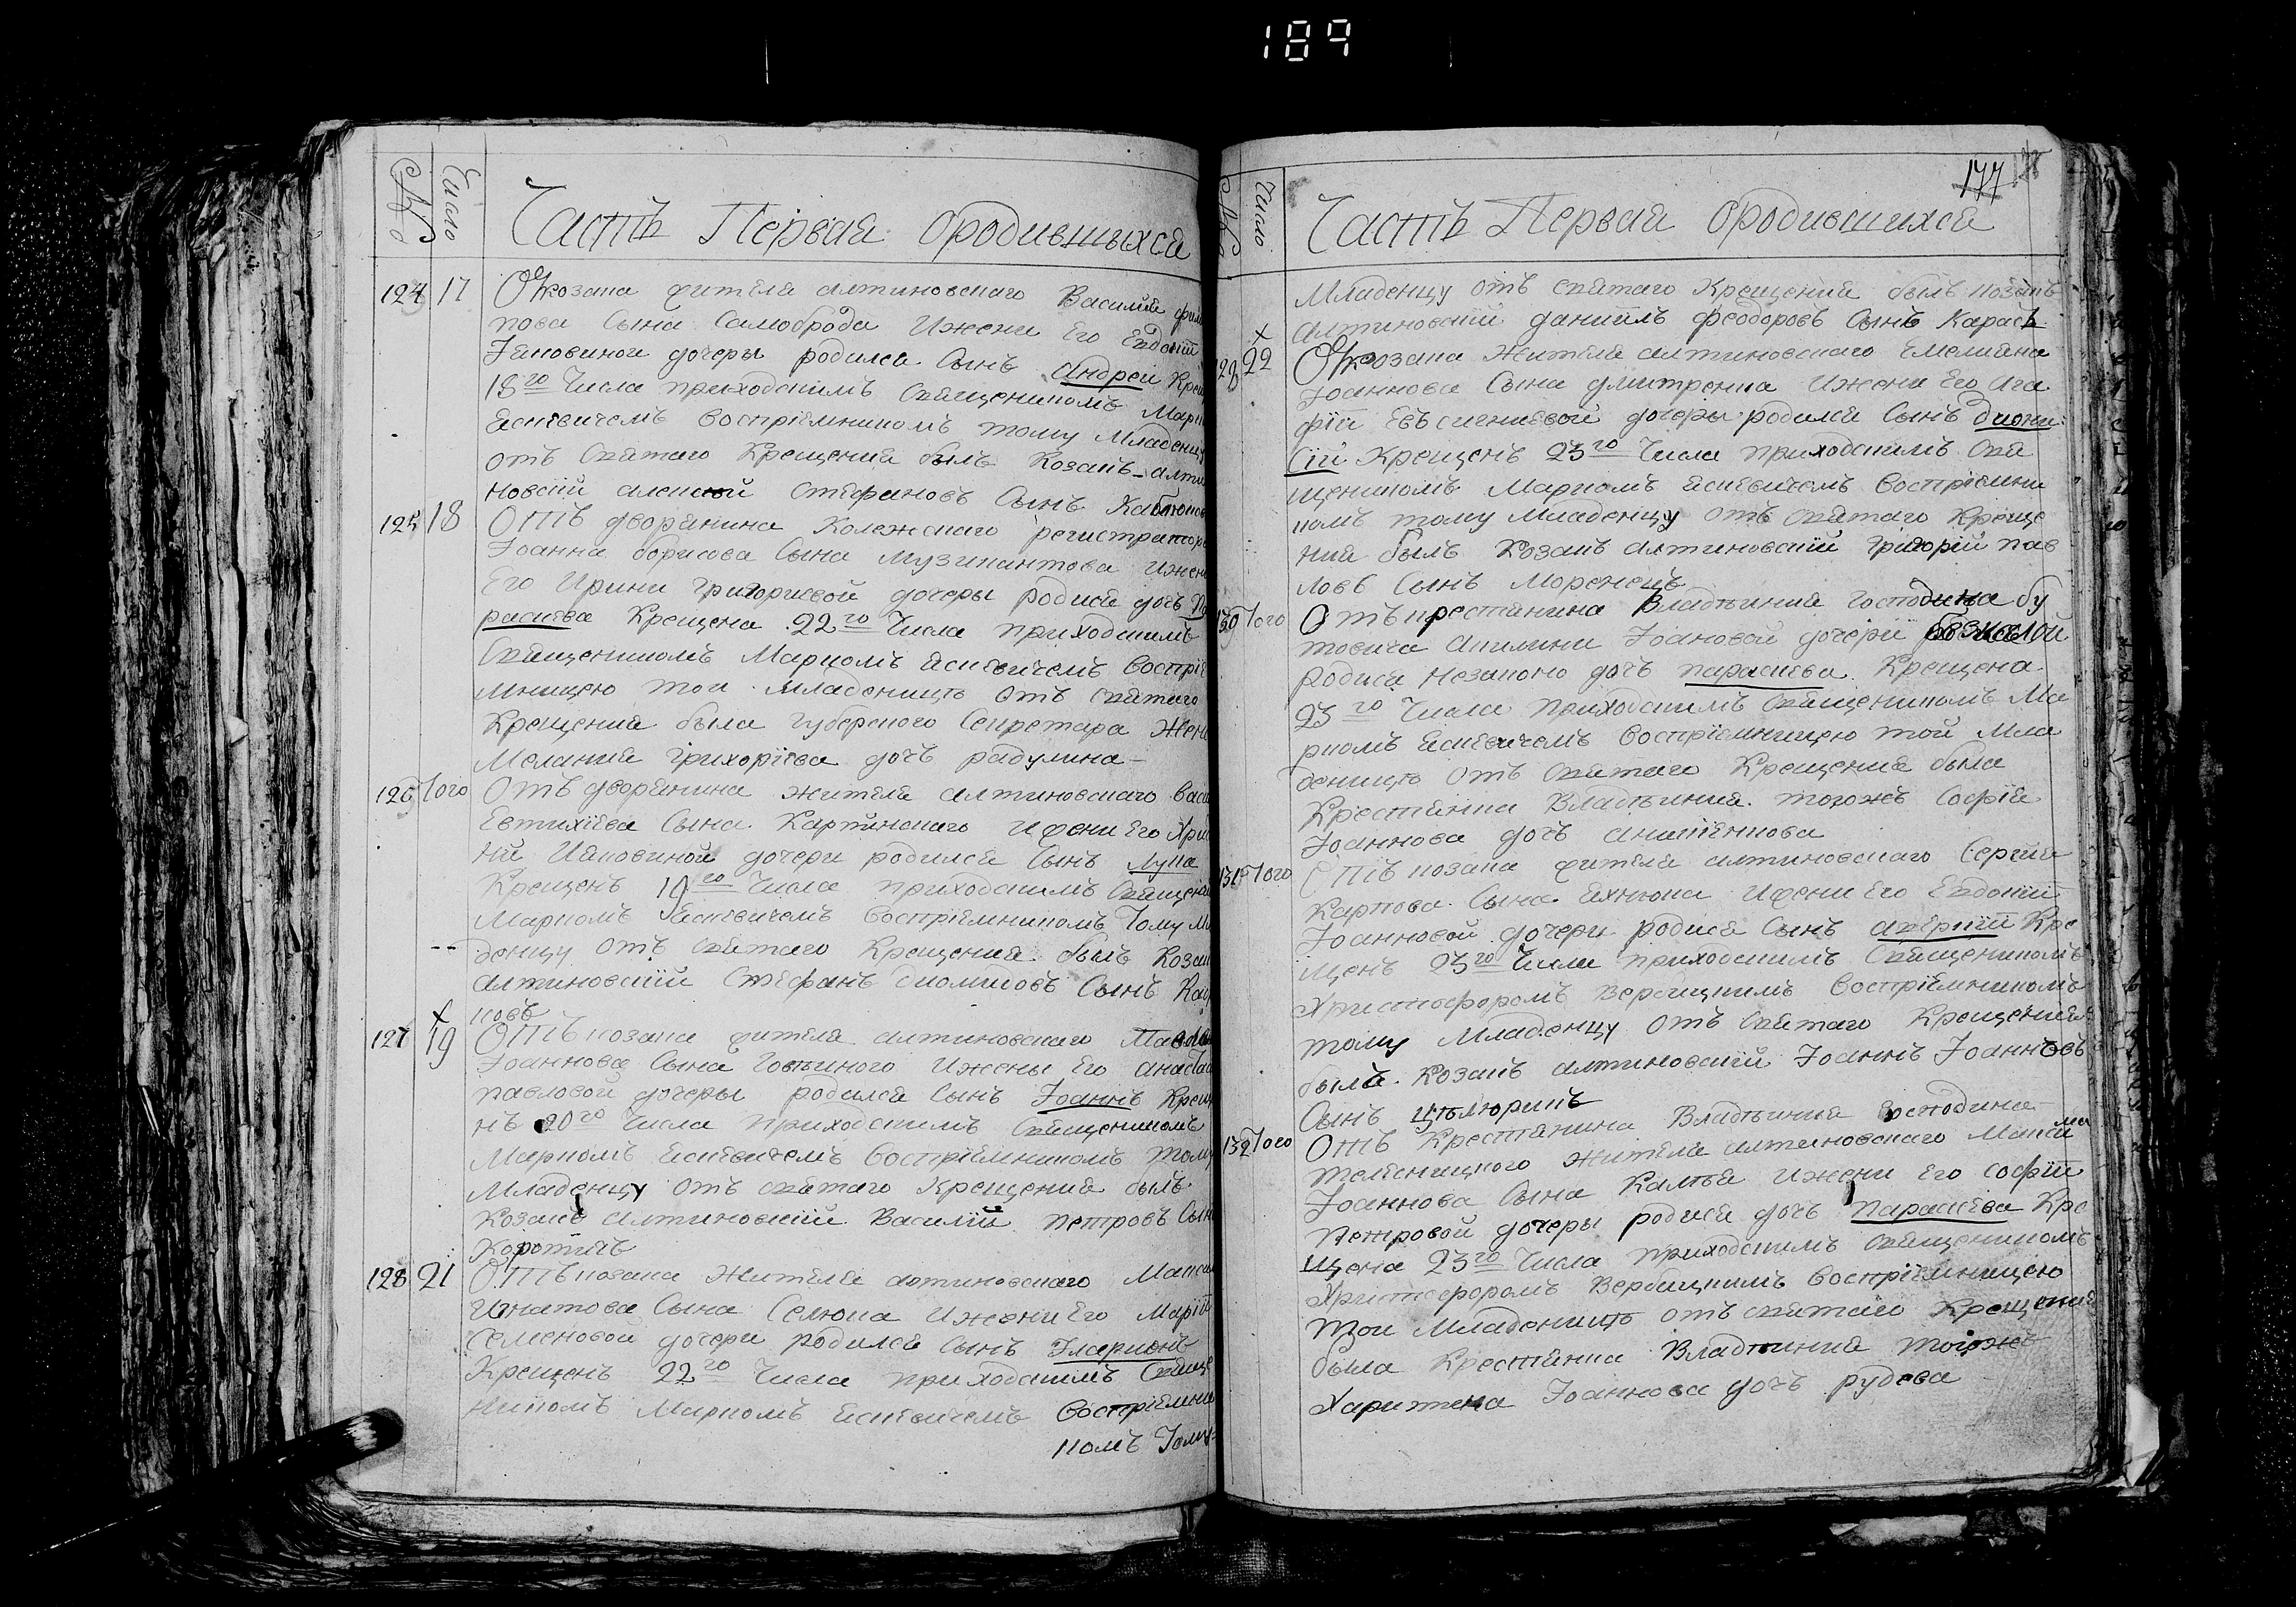 189
№ Число Часть Первая ородившихся
124 17 От козака жителя алтиновскаго Василия
пова Сына Самоброда Ижени Его Евдокии
Яковиной дочеры родился Сынъ Андрей
18го Числа приходскимъ Священикомъ
Ясневичемъ Воспріемникомъ тому Младенцу
отъ Святаго Крещения былъ Козакъ
новскій алексей Стефановъ Сынъ
125 18 Отъ дворянина Колежскаго регистратора
Іоанна борисова Сына Музикантова
Его Ирини григориевой дочеры родися дочь
раскева Крещена 22го Числа приходскимъ
Священикомъ Маркомъ Ясневичемъ
мницею той Младеницѣ отъ святаго
Крещения была губерского Секретара
Мелания григоріева дочь радулина
126 Того Отъ дворянина жителя алтиновскаго
Евтихіева Сына Картинскаго Ижени Его
ни Ияковиной дочери родился Сынъ Лупа
Крещенъ 19го Числа приходскимъ
Маркомъ Ясневичемъ Воспріемникомъ Тому
денцу отъ Святаго Крещения былъ
алтиновскій Стефанъ диомидовъ Сынъ
новъ
127 19 Отъ козака жителя алтиновскаго Павла
Іоаннова Сына Ижены Его
павловой дочеры родился Сынъ Іоаннъ
нъ 20го Числа приходскимъ Священикомъ
Маркомъ Ясневичемъ Воспріемникомъ тому
Младенцу отъ святаго Крещения былъ
Козакъ алтиновскій Василій петровъ Сынъ
Коротичъ
128 21 Отъ козака Жителя алтиновскаго
Игнатова Сына Селюка Ижени Его Маріи
Семеновой дочери родился Сынъ Іларионъ
Крещенъ 22го Числа приходскимъ
никомъ Маркомъ Ясневичемъ
комъ Тому
177
№ Число Часть Первая ородившихся
Младенцу отъ святаго Крещения былъ козакъ
алтиновскій даниилъ феодоровъ Сынъ Карась
129 22 От козака Жителя алтиновскаго Емелияна
Іоаннова Сына дмитренка Ижени Его Ага
фіи Евъсигниевой дочеры родился Сынъ диони
сій Крещенъ 23го Числа приходскимъ Свя
щеникомъ Маркомъ Ясневичемъ Воспріемни
комъ тому Младенцу отъ святаго Креще
ния былъ Козакъ алтиновскій григорій пав
ловъ Сынъ Моренецъ
130 Того Отъ крестянина Владѣния господина бу
товича Акилини Іоановой дочери
родися незаконо дочь параскева Крещена
23го Числа приходскимъ Священикомъ Ма
ркомъ Ясневичемъ Воспріемницею той Мла
деницѣ отъ Святаго Крещения была
Крестянка Владѣния тогожъ Софія
Іоаннова дочь
131 Того Отъ козака жителя алтиновскаго Сергия
Карпова Сына Яхнюка Ижени Его Евдокіи
Іоанновой дочери родися Сынъ аверкій Кре
щенъ 23го Числа приходскимъ Священикомъ
Христофоромъ Вербицкимъ Воспріемникомъ
тому Младенцу отъ Святаго Крещения
былъ Козакъ алтиновскій Іоаннъ Іоанновъ
Сынъ Цѣлюрикъ
132 Того Отъ Крестянина Владѣния господина
Жителя алтиновскаго Максима
Іоаннова Сына Ижени Его Софіи
петровой дочеры родися дочь параскева Кре
щена 23го Числа приходскимъ священикомъ
Христофоромъ Вербицкимъ Воспріемницею
той Младеницѣ отъ святаго Крещения
была Крестянка Владѣния тогожъ
Харитена Іоаннова дочь рудева